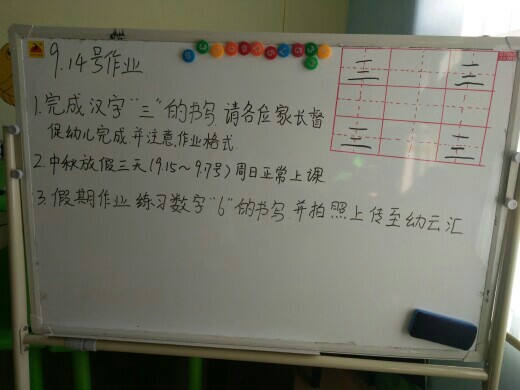 9.14号作业
三 三
三 三
1.完成汉字"三"的书写 请各位家长督
促幼儿完成 并注意作业格式
2.中秋放假三天(9.15~9.17号) 周日正常上课
3.假期作业 练习数字"6"的书写 并拍照上传至幼云汇